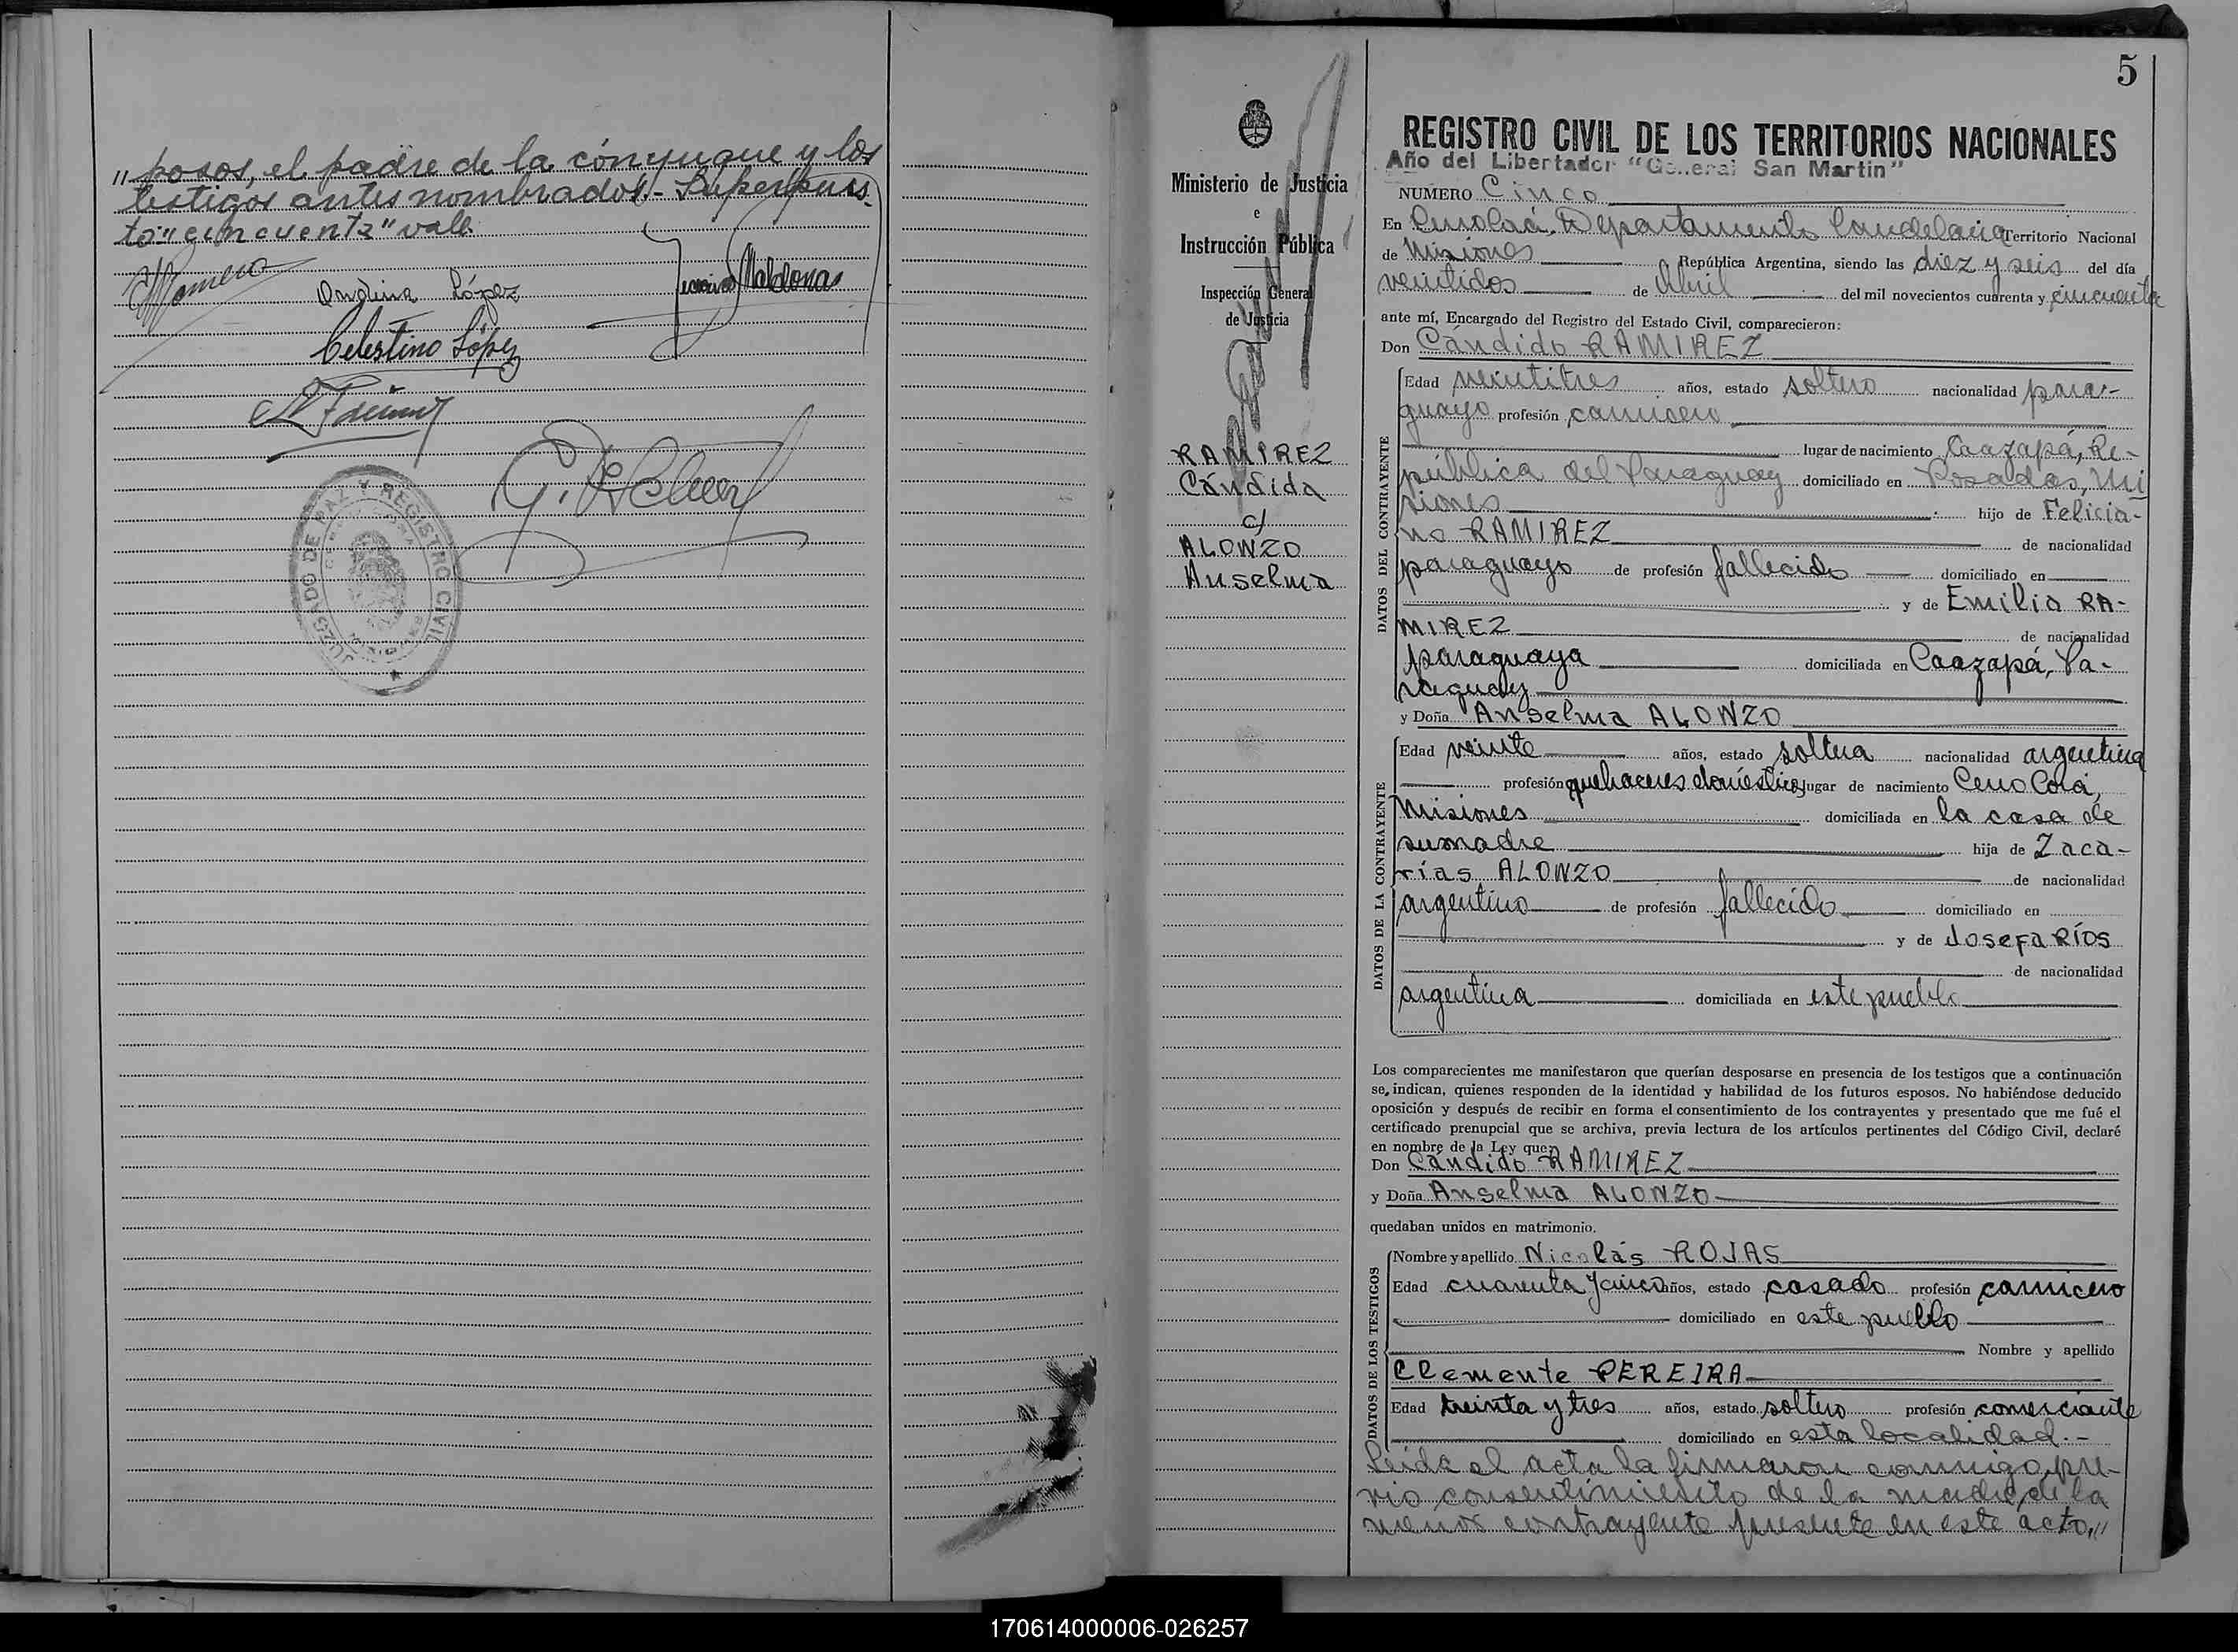 „posos, el padre de la cónyugue y los
testigos antes nombrados.- Superpues-
to "cincuenta" vale.
Romero
Ondina López
Maldona
Celestino López
JUZGADO DE PAZ Y REGISTRO CIVIL
5
REGISTRO CIVIL DE LOS TERRITORIOS NACIONALES
Año del Libertador "General San Martin"
Ministerio de Justicia
e
Instrucción Pública
Inspección General
de Justicia
RAMIREZ
Cándida
c/
ALONZO
Anselma
NUMERO Cinco
En Cerro Corá, Departamento Candelaria Territorio Nacional
de Misiones República Argentina, siendo las diez y seis del día
veintidos de Abril del mil novecientos cuarenta y cincuenta
ante mí, Encargado del Registro del Estado Civil, comparecieron:
Don Cándido RAMIREZ
DATOS DEL CONTRAYENTE
Edad veintitres años, estado soltero nacionalidad para-
guayo profesión carnicero
lugar de nacimiento Caazapá, Re-
pública del Paraguay domiciliado en Posadas, Mi
siones hijo de Felicia-
no RAMIREZ de nacionalidad
paraguayo de profesión fallecido domiciliado en
y de Emilia RA-
MIREZ de nacionalidad
paraguaya domiciliada en Caazapá, Pa-
raguay
y Doña Anselma ALONZO
DATOS DE LA CONTRAYENTE
Edad veinte años, estado soltera nacionalidad argentina
profesión quehaceres domésticos lugar de nacimiento Cerro Corá,
Misiones domiciliada en la casa de
su madre hija de Zaca-
rías ALONZO de nacionalidad
argentino de profesión fallecido domiciliado en
y de Josefa RÍOS
de nacionalidad
argentina domiciliada en este pueblo
Los comparecientes me manifestaron que querían desposarse en presencia de los testigos que a continuación
se indican, quienes responden de la identidad y habilidad de los futuros esposos. No habiéndose deducido
oposición y después de recibir en forma el consentimiento de los contrayentes y presentado que me fué el
certificado prenupcial que se archiva, previa lectura de los artículos pertinentes del Código Civil, declaré
en nombre de la Ley que:
Don Cándido RAMIREZ
y Doña Anselma ALONZO
quedaban unidos en matrimonio.
DATOS DE LOS TESTIGOS
Nombre y apellido Nicolás ROJAS
Edad cuarenta y cinco años, estado casado profesión carnicero
domiciliado en este pueblo
Nombre y apellido
Clemente PEREIRA
Edad treinta y tres años, estado soltero profesión comerciante
domiciliado en esta localidad.-
Leída el acta la firmaron conmigo, pre-
vio consentimiento de la madre de la
menor contrayente presente en este acto,"
170614000006-026257